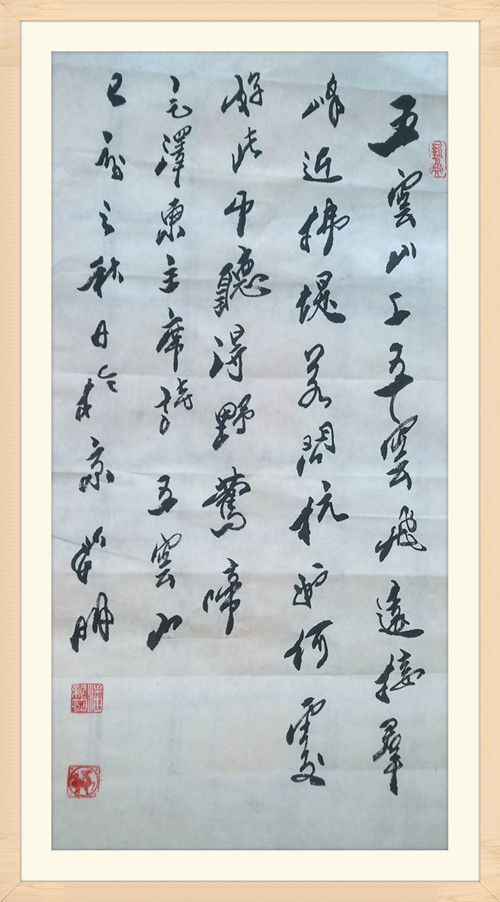 五雲山上五雲飛遠接羣
峰近拂堤若問杭州何處
好此中聽得野鶯啼
毛澤東主席詩五雲山
之秋日於京明